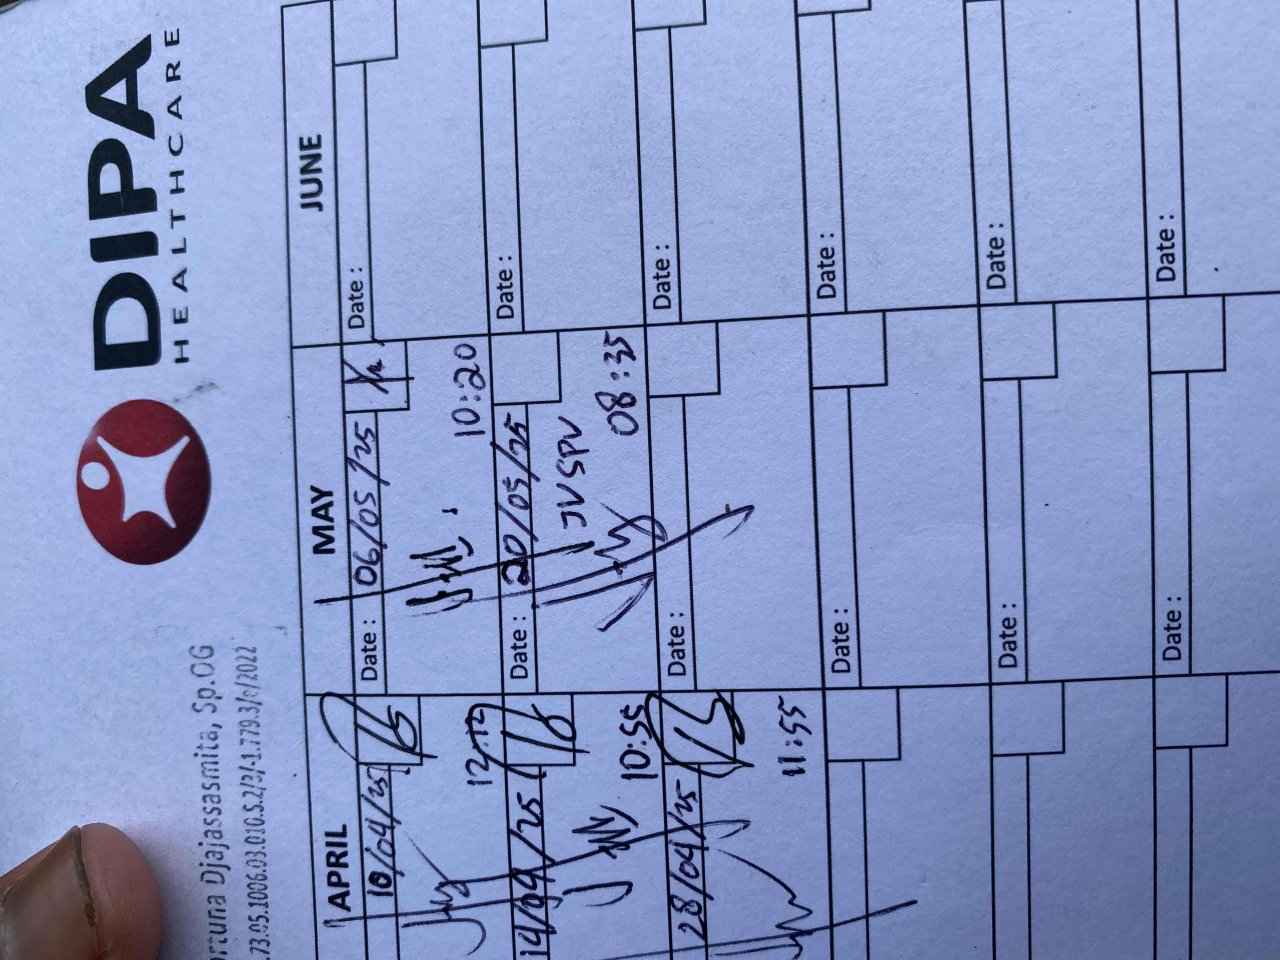 DIPA
HEALTHCARE
Djajassasmita, Sp.OG
APRIL MAY JUNE
10/04/25
12:12
Date : 06/05/25
10:20
Date :
14/04/25
10:55
Date : 20/05/25
JV SPV
08:35
Date :
28/04/25
11:55
Date :
Date :
Date :
Date :
Date :
Date :
Date :
Date :